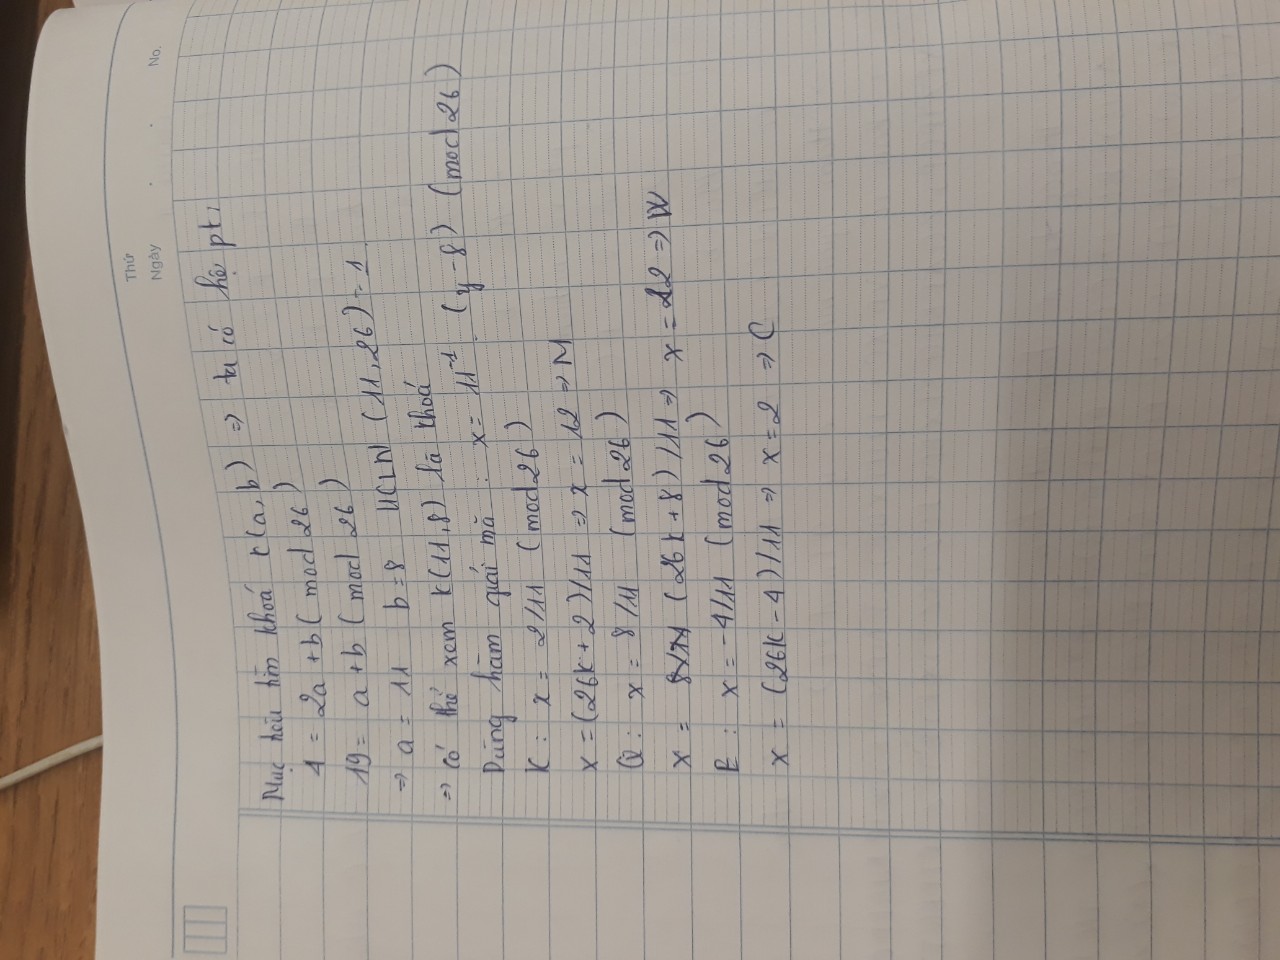 Thứ
Ngày . . No.
Mục tiêu tìm khoá K(a,b) => ta có hệ pt:
4 = 2a + b (mod 26)
19 = a + b (mod 26)
=> a = 11 b = 8 UCLN (11,26) = 1
=> có thể xem K(11,8) là khoá
Dùng hàm giải mã : x = 11⁻¹ (y - 8) (mod 26)
K : x = 2/11 (mod 26)
x = (26k + 2)/11 => x = 12 => M
Q : x = 8/11 (mod 26)
x = (26k + 8)/11 => x = 22 => W
E : x = -4/11 (mod 26)
x = (26k - 4)/11 => x = 2 => C